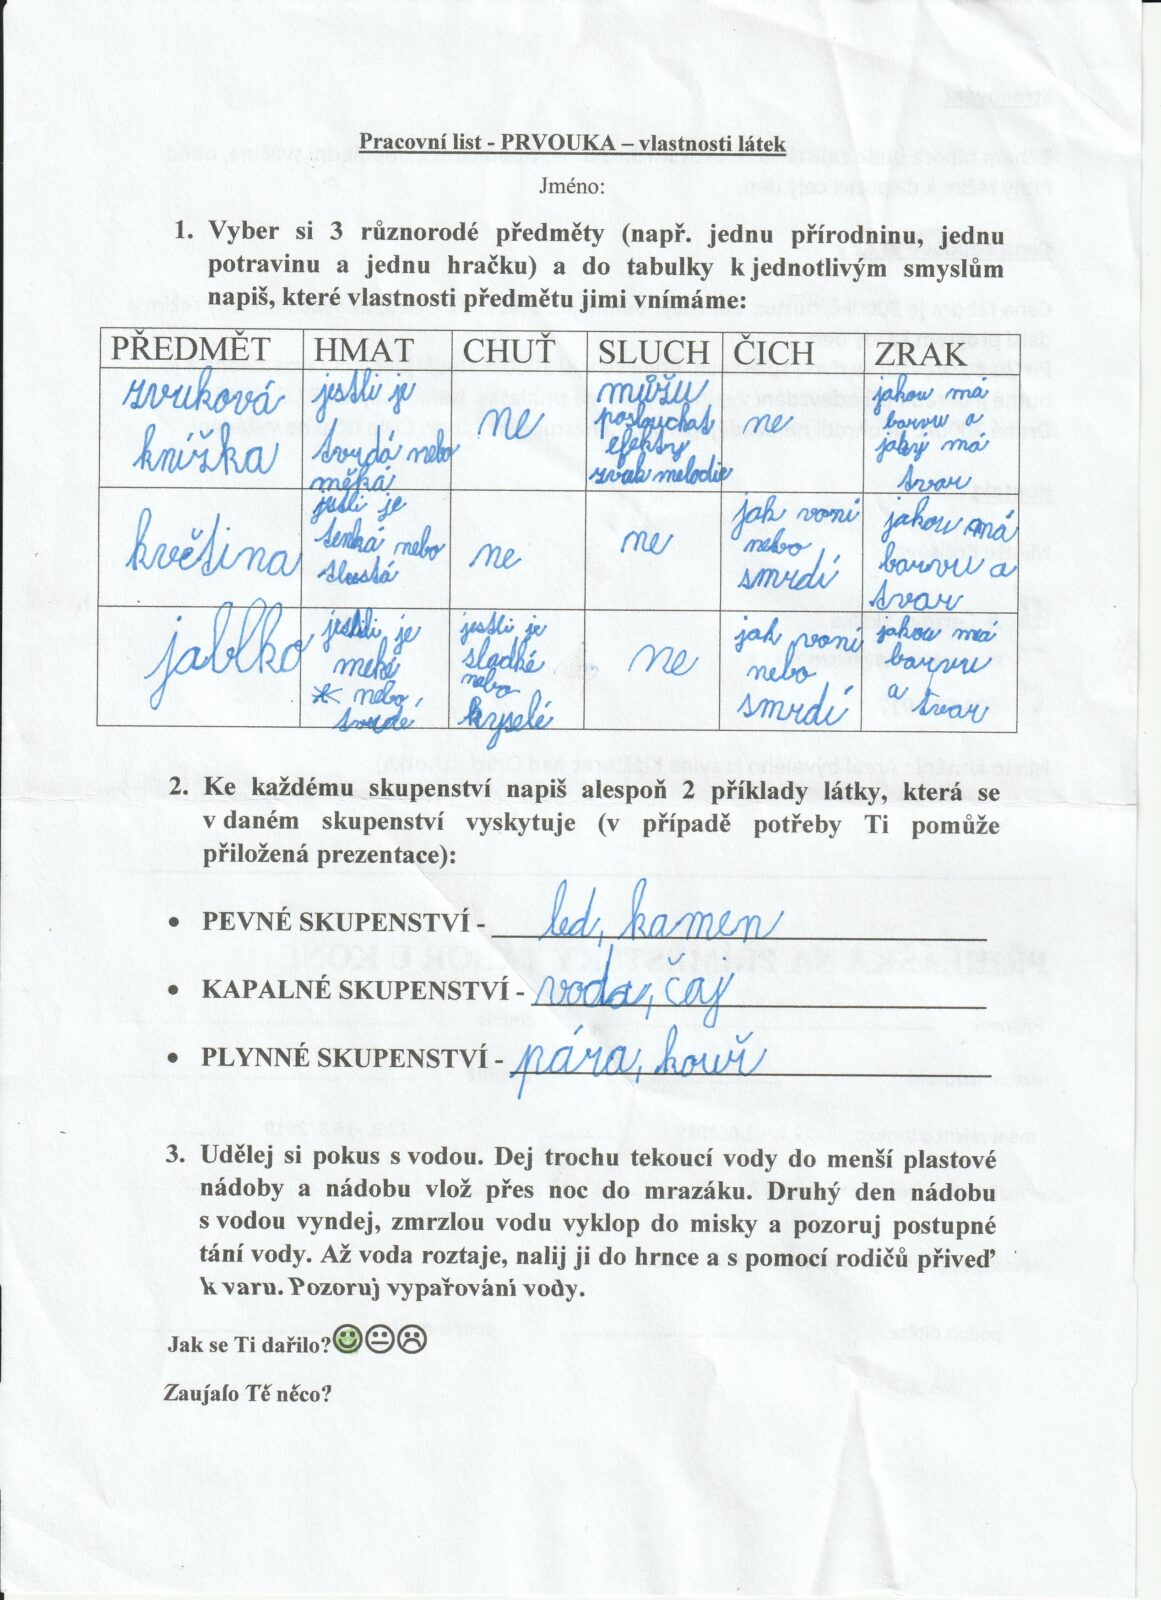 Pracovní list - PRVOUKA – vlastnosti látek
Jméno:
1. Vyber si 3 různorodé předměty (např. jednu přírodninu, jednu
potravinu a jednu hračku) a do tabulky k jednotlivým smyslům
napiš, které vlastnosti předmětu jimi vnímáme:
PŘEDMĚT HMAT CHUŤ SLUCH ČICH ZRAK
zvuková
knížka
jestli je
tvrdá nebo
měká
ne
můžu
poslouchat
efekty
zvak melodie
ne
jakou má
barvu a
jaký má
tvar
květina
jestli je
tenká nebo
tlustá
ne
ne
jak voní
nebo
smrdí
jakou má
barvu a
tvar
jablko
jestli je
meké
nebo
tvrdé
jestli je
sladké
nebo
kyselé
ne
jak voní
nebo
smrdí
jakou má
barvu
a tvar
2. Ke každému skupenství napiš alespoň 2 příklady látky, která se
v daném skupenství vyskytuje (v případě potřeby Ti pomůže
přiložená prezentace):
• PEVNÉ SKUPENSTVÍ - led, kamen
• KAPALNÉ SKUPENSTVÍ - voda, čaj
• PLYNNÉ SKUPENSTVÍ - pára, kouř
3. Udělej si pokus s vodou. Dej trochu tekoucí vody do menší plastové
nádoby a nádobu vlož přes noc do mrazáku. Druhý den nádobu
s vodou vyndej, zmrzlou vodu vyklop do misky a pozoruj postupné
tání vody. Až voda roztaje, nalij ji do hrnce a s pomocí rodičů přiveď
k varu. Pozoruj vypařování vody.
Jak se Ti dařilo?
Zaujalo Tě něco?